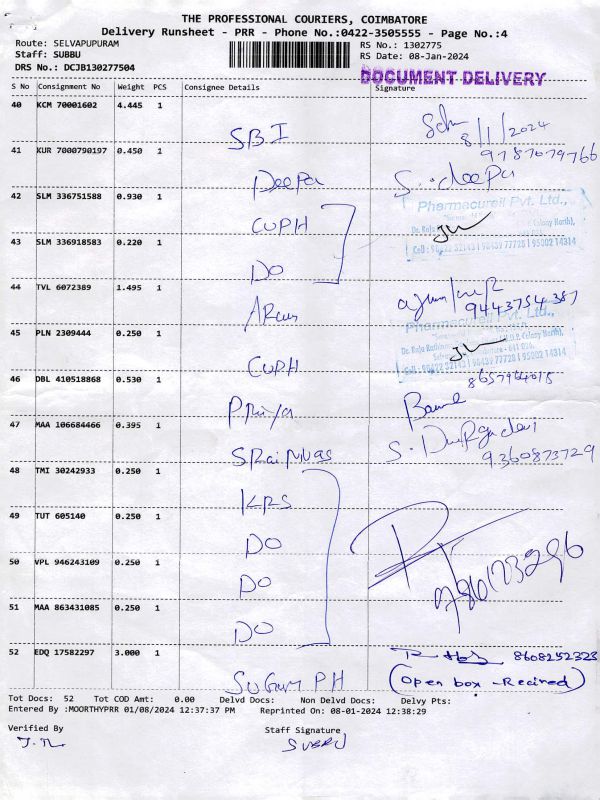 THE PROFESSIONAL COURIERS, COIMBATORE
Delivery Runsheet - PRR - Phone No.:0422-3505555 - Page No.:4
Route: SELVAPUPURAM RS No.: 1302775
Staff: SUBBU RS Date: 08-Jan-2024
DRS No.: DCJB130277504 DOCUMENT DELIVERY
S No Consignment No Weight PCS Consignee Details Signature
40 KCM 70001602 4.445 1 SBI 8/1/2024
9787079766
41 KUR 7000790197 0.450 1 Deepa S. deepa
42 SLM 336751588 0.930 1 CUPH Pharmacureil Pvt. Ltd.,
43 SLM 336918583 0.220 1 DO Cell : 98422 32143 | 98439 77728 | 95002 14314
44 TVL 6072389 1.495 1 ARun 9443754387
45 PLN 2309444 0.250 1 CUPH Pharmacureil Pvt. Ltd.,
Cell : 98422 32143 | 98439 77728 | 95002 14314
46 DBL 410518868 0.530 1 PRiya
47 MAA 106684466 0.395 1 SRaiNivas S. Durga devi
9360873729
48 TMI 30242933 0.250 1 KRS
49 TUT 605140 0.250 1 DO
50 VPL 946243109 0.250 1 DO
51 MAA 863431085 0.250 1 DO
52 EDQ 17582297 3.000 1 Sugam PH 8608252323
(Open box - Recived)
Tot Docs: 52 Tot COD Amt: 0.00 Delvd Docs: Non Delvd Docs: Delvy Pts:
Entered By :MOORTHYPRR 01/08/2024 12:37:37 PM Reprinted On: 08-01-2024 12:38:29
Verified By Staff Signature
SUBBU